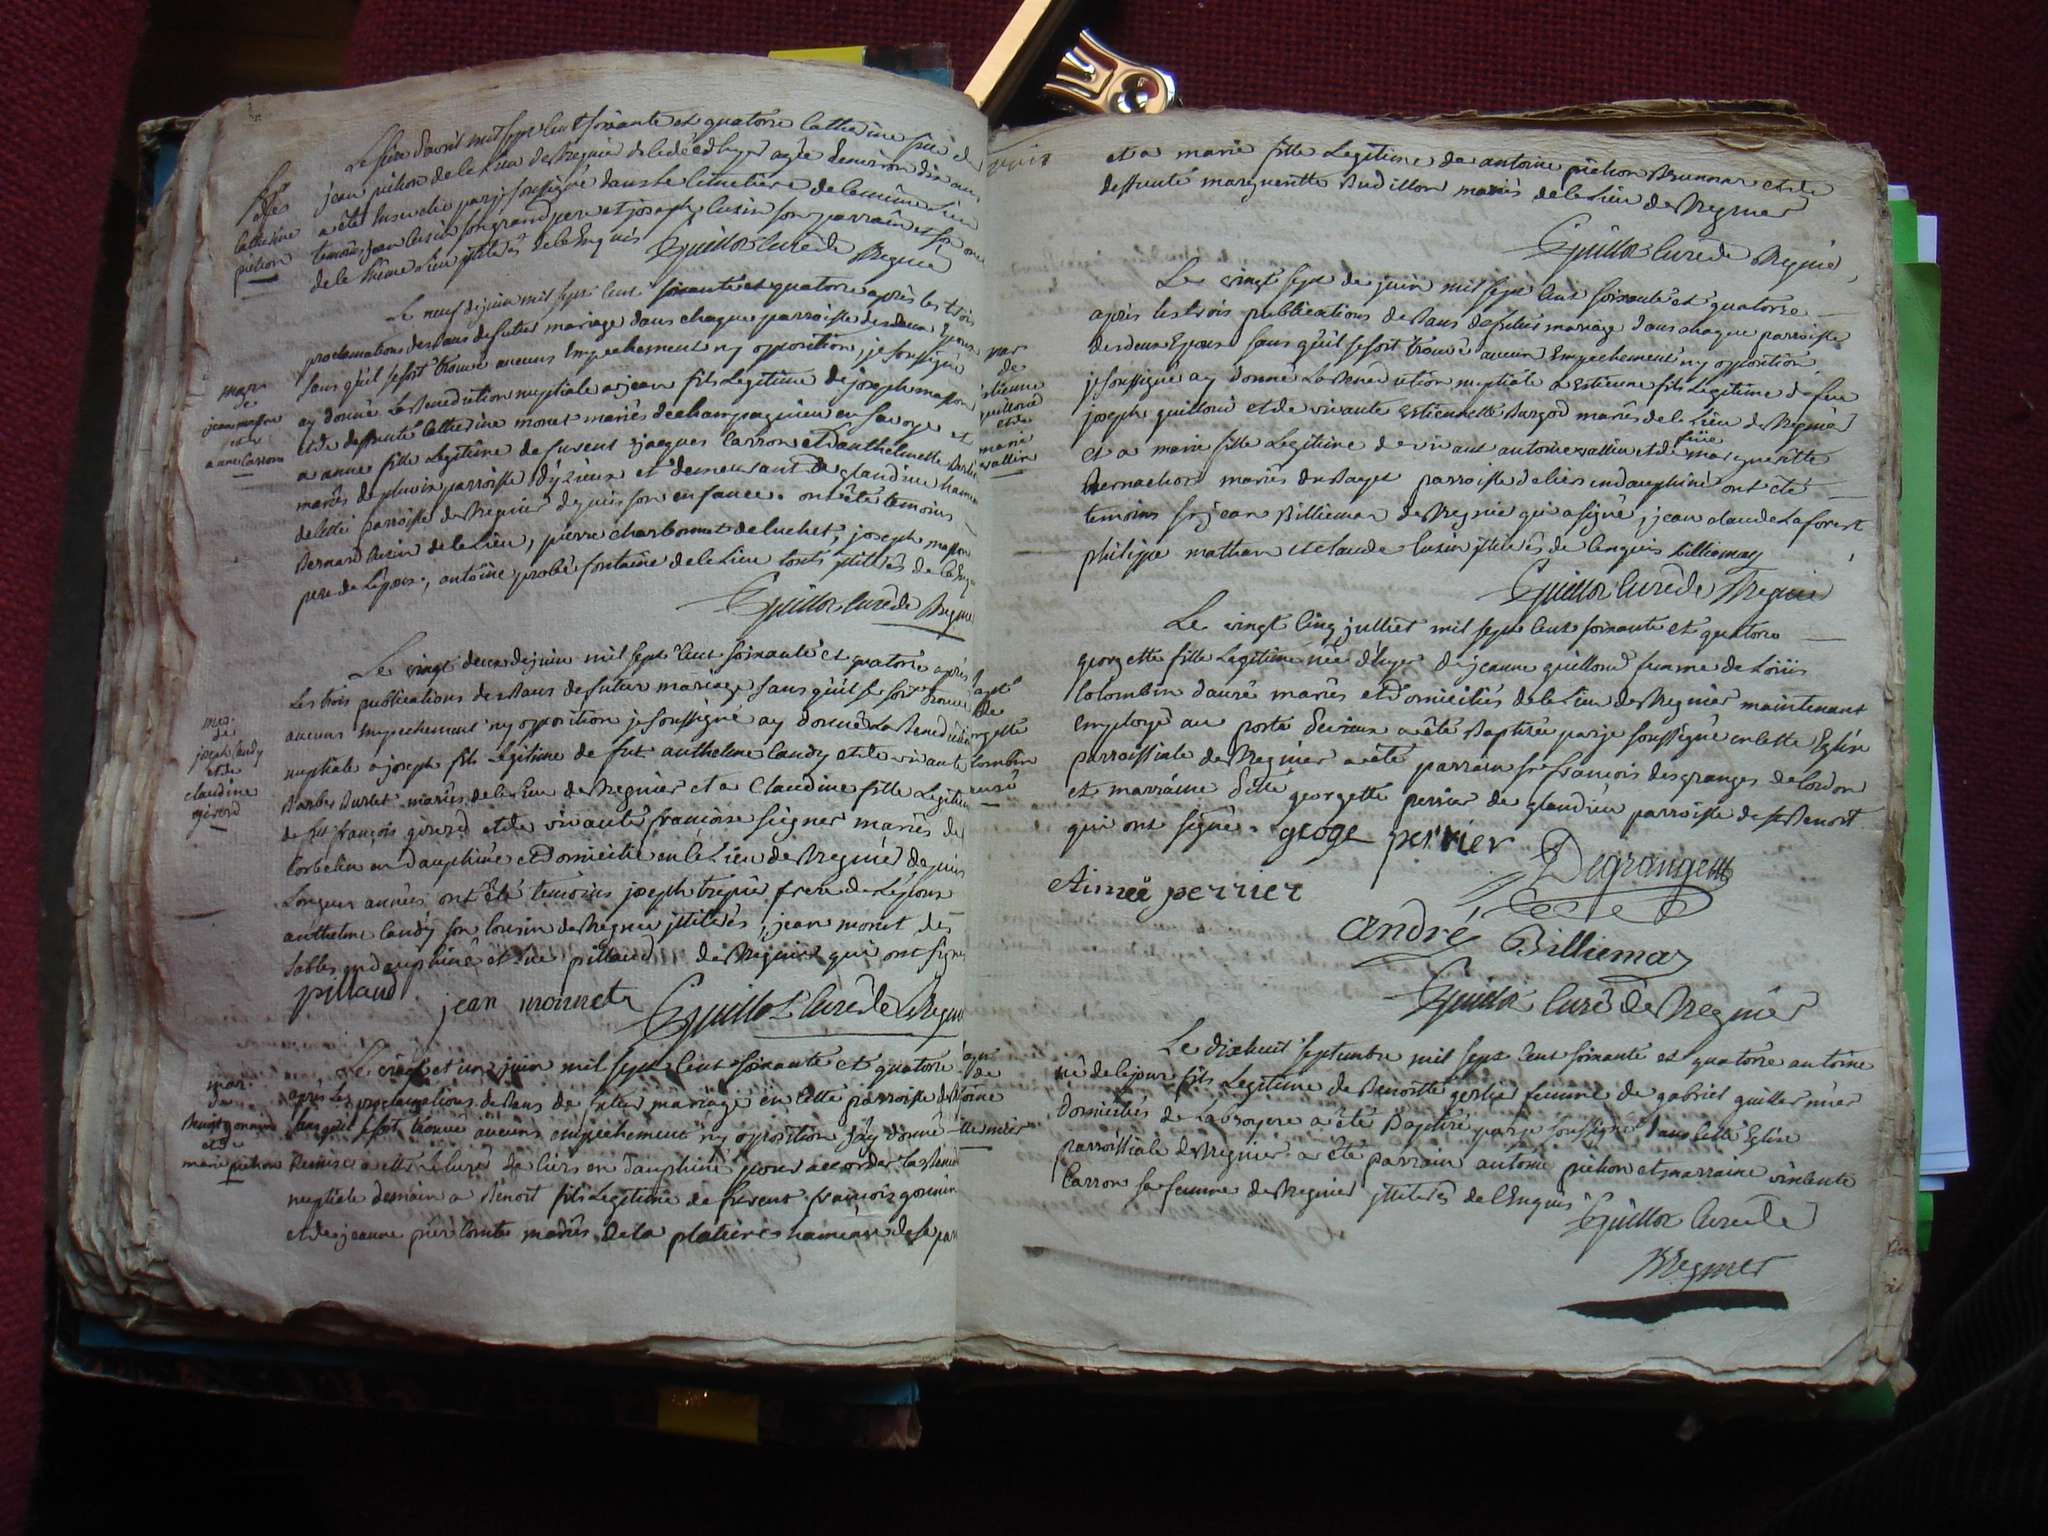 Le seize d'avril mil sept cent soixante et quatorze Catherine fille de
jean pichon de ce Lieu de Regnier decedée d'hyer agée d'environ dix ans
a été inhumée par je soussigné dans le Cimetiere de ce même Lieu
temoins jean Cusin son grand pere et joseph Cusin son parrain
de ce même Lieu illiterés de ce Enquis Guillot Curé de Regnié
Catherine
pichon
Le neuf de juin mil sept cent soixante et quatorze après les trois
proclamations de Bans de futur mariage dans chaque parroisse des deux Epoux
sans qu'il se soit trouvé aucuns Empechement ny opposition, je soussigné
ay donné La Benediction nuptiale a jean fils Legitime de joseph masson
et de deffunte Catherine monet mariés de champagnieu en Savoye et
a anne fille Legitime de jacques Carron et d'anthelmette
mariés de parroisse d'yzieux et demeurant de glandieu hameau
de cette parroisse de Regnier depuis son enfance. ont été temoins
Bernard Cusin de ce Lieu, pierre charbonnet de Luchet, joseph masson
pere de L'epoux, antoine probé fontaine de ce Lieu touts illiterés de ce Enquis
Guillot Curé de Regnié
mar.
de
jean masson
et de
anne Carron
Le vingt deux de juin mil sept cent soixante et quatorze après
Les trois publications de Bans de futur mariage sans qu'il se soit trouvé
aucuns Empechement ny opposition je soussigné ay donné La Benediction
nuptiale a joseph fils Legitime de fut anthelme Candy et de vivante
Barbe Burlet mariés de ce Lieu de Regnier et a Claudine fille Legitime
de fut françois girerd et de vivante françoise seigner mariés de
Corbelin en Dauphiné et Domiciliée en ce Lieu de Regnié depuis
Longues années ont été temoins joseph trepier frere de L'epoux
anthelme Candy son cousin de Regnier illiterés, jean monet des
sables en dauphiné et pillaud de Regnier qui ont signé
pillaud jean monnet Guillot Curé de Regnié
mar.
de
joseph Candy
et de
claudine
girerd
Le vingt et un juin mil sept cent soixante et quatorze
après Les proclamations de Bans de futur mariage en cette parroisse
sans qu'il se soit trouvé aucuns empechement ny opposition j'ay donné
Remise a Mr Le Curé de Ciers en dauphiné pour accorder La Benediction
nuptiale demain a Benoit fils Legitime de françois gonnin
et de jeanne pierre Comte mariés de la platiere hameau de
mar.
de
Benoit gonnin
et de
marie pichon
et a marie fille Legitime de antoine pichon Brunnar et de
deffunte marguerite Budillon mariés de ce Lieu de Regnier
Guillot Curé de Regnié
Le vingt sept de juin mil sept cent soixante et quatorze
après les trois publications de Bans de futur mariage dans chaque parroisse
des deux Epoux sans qu'il se soit trouvé aucun Empechement ny opposition
je soussigné ay donné La Benediction nuptiale a Estienne fils Legitime de feu
joseph guilloud et de vivante Estiennette Burgod mariés de ce Lieu de Regnié
et a marie fille Legitime de vivant antoine vallin et de marguerite
Bernachon mariés du Bayet parroisse de Ciers en dauphiné ont été
temoins Sr jean Billiemaz de Regnié qui a signé, jean claude Laforest
philippe mathan et claude Cusin illiterés de ce enquis Billiemaz
Guillot Curé de Regnié
mar
de
estienne
guilloud
et de
marie
vallin
Le vingt cinq julliet mil sept cent soixante et quatorze
georgette fille Legitime née d'hyer de jeanne guilloud femme de Loüis
Colombin dauré mariés et Domiciliés de ce Lieu de Regnier maintenant
Employé au poste a été Baptisée par je soussigné en cette Eglise
parroissiale de Regnier a été parrain Sr françois desgranges de Cordon
et marraine Delle georgette perrier de glandieu parroisse de St Benoit
qui ont signé. geoge perrier Degranges
Aimée perrier
andré Billiemaz
Guillot Curé de Regnier
Le dixhuit septembre mil sept cent soixante et quatorze antoine
né de ce jour fils Legitime de Benoitte gerlie femme de gabriel guillermier
domiciliés de La broyere a été Baptisé par je soussigné dans cette Eglise
parroissiale de Regnier a été parrain antoine pichon et marraine vincente
Carron sa femme de Regnier illiterés de ce Enquis Guillot Curé de
Regnier